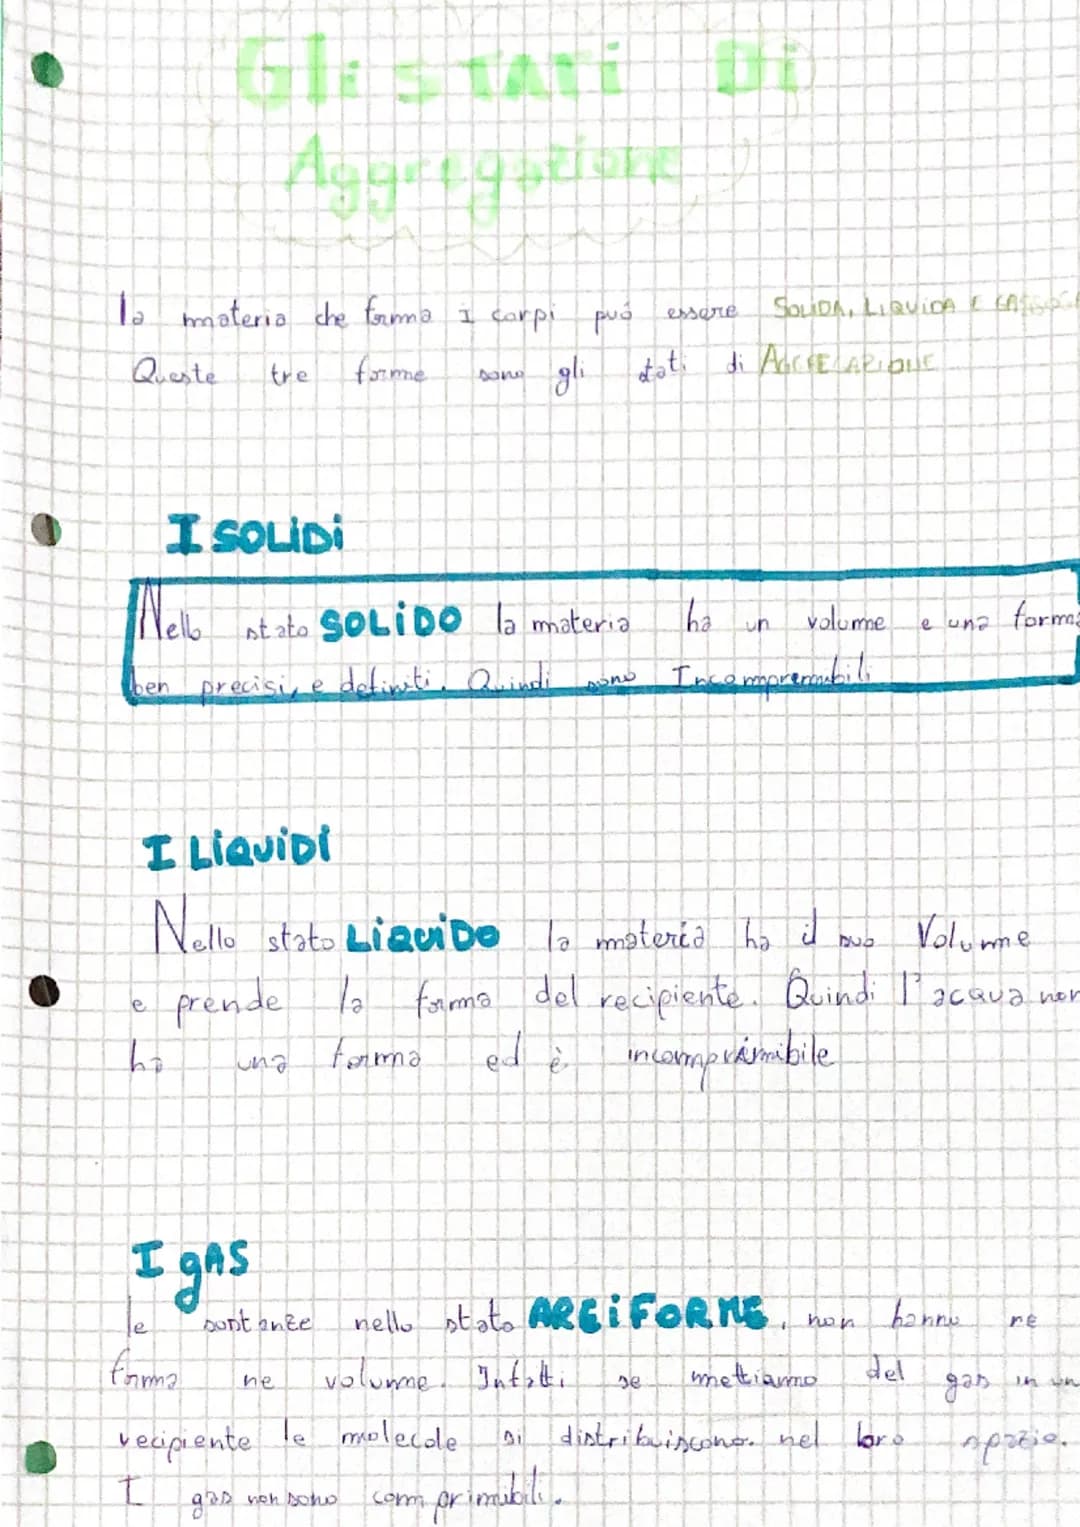 Gli STATi Di
Aggregazione
la materia che forma I corpi può essere SOLIDA, LIQUIDA E GASSOSA
Queste tre forme sono gli stati di AGGREGAZIONE
I SOLiDi
Nello stato SOLiDO la materia ha un volume e una forma
ben precisi, e definiti. Quindi sono Incomprensibili
I LiQUiDi
Nello stato LiQUiDO la materia ha il suo Volume
e prende la forma del recipiente. Quindi l'acqua non
ha una forma ed è incomprimibile
I gAS
le sostanze nello stato AREiFORME, non hanno ne
forma ne volume. Infatti se mettiamo del gas in un
recipiente le molecole si distribuiscono. nel loro spazio.
I gas non sono comprimibili.